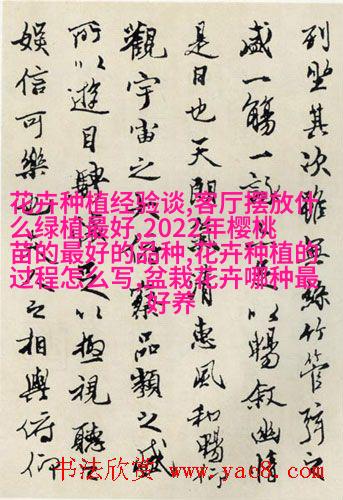 列坐其次雖無絲竹管弦之
盛一觴一詠以暢敘幽情
是日也天朗氣清惠風和暢仰
觀宇宙之大俯察品類之盛
所以遊目騁足以極視聽之
娛信可樂也之相與俯仰
花卉种植经验谈,客厅摆放什
么绿植最好,2022年樱桃
苗的最好的品种,花卉种植的
过程怎么写,盆栽花卉哪种最
好养
书法欣赏 www.yac8.com